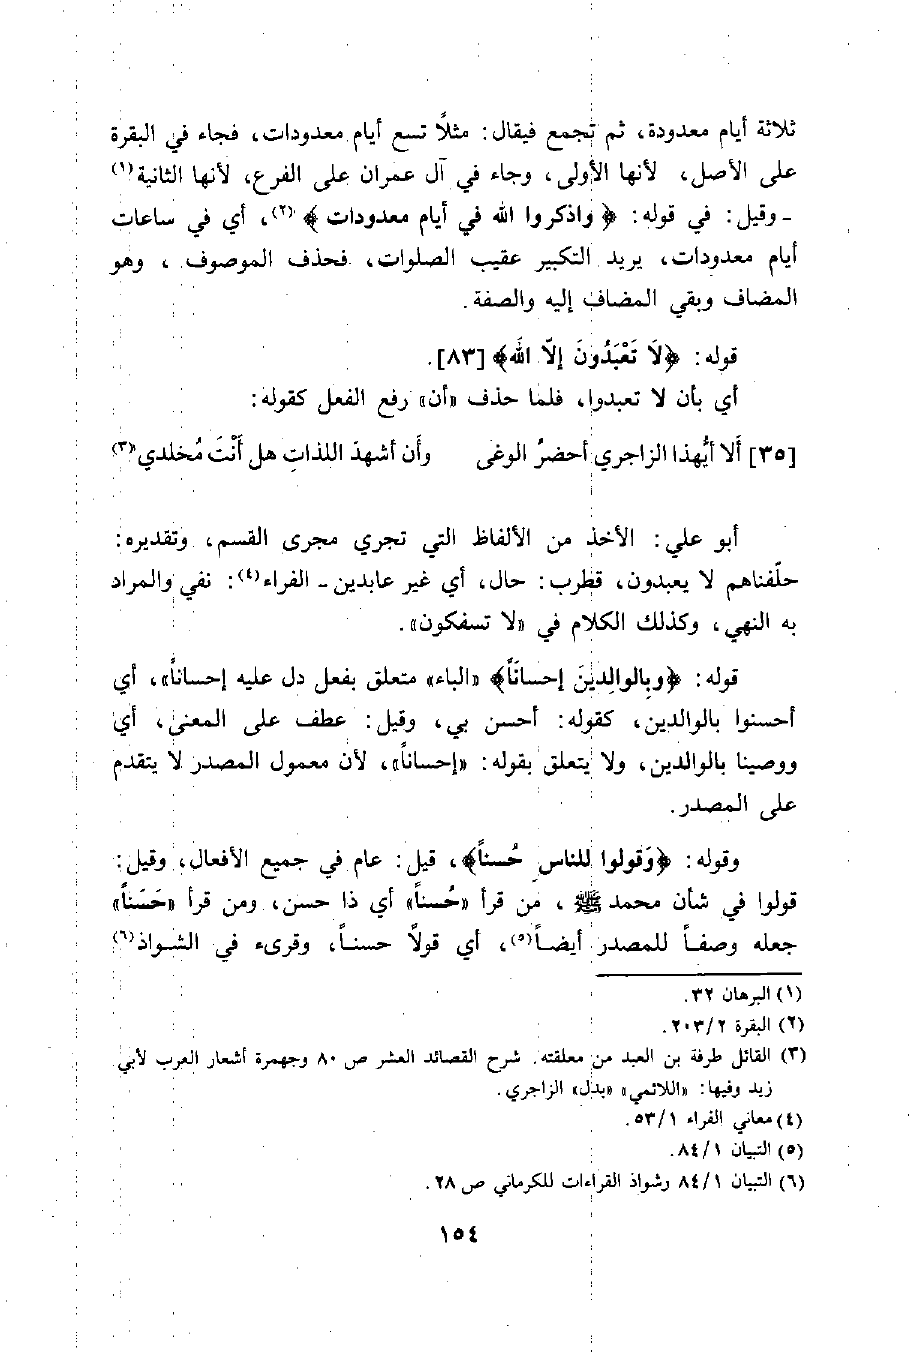 ثلاثة أيام معدودة، ثم تجمع فيقال: مثلاً تسع أيام معدودات، فجاء في البقرة
على الأصل، لأنها الأولى، وجاء في آل عمران على الفرع، لأنها الثانية(١)
- وقيل: في قوله: ﴿واذكروا الله في أيام معدودات﴾(٢)، أي في ساعات
أيام معدودات، يريد التكبير عقيب الصلوات، فحذف الموصوف، وهو
المضاف وبقي المضاف إليه والصفة.
قوله: ﴿لَا تَعْبَدُونَ إلّا اللَه﴾ [٨٣].
أي بأن لا تعبدوا، فلما حذف «أن» رفع الفعل كقوله:
[٣٥] أَلا أيُّهذا الزاجري أحضرُ الوغى وأَن أشهدَ اللذاتِ هل أَنْتَ مُخلدي(٣)
أبو علي: الأخذ من الألفاظ التي تجري مجرى القسم، وتقديره:
حلّفناهم لا يعبدون، قطرب: حال، أي غير عابدين - الفراء(٤): نفي والمراد
به النهي، وكذلك الكلام في «لا تسفكون».
قوله: ﴿وبِالوالِدينَ إحساناً﴾ «الباء» متعلق بفعل دل عليه إحساناً»، أي
أحسنوا بالوالدين، كقوله: أحسن بي، وقيل: عطف على المعنى، أي
ووصينا بالوالدين، ولا يتعلق بقوله: «إحساناً»، لأن معمول المصدر لا يتقدم
على المصدر.
وقوله: ﴿وَقولوا للناسِ حُسناً﴾، قيل: عام في جميع الأفعال، وقيل:
قولوا في شأن محمد ﷺ، مَن قرأ «حُسناً» أي ذا حسن، ومن قرأ «حَسَناً»
جعله وصفاً للمصدر أيضاً(٥)، أي قولاً حسناً، وقرىء في الشواذ(٦)
(١) البرهان ٣٢.
(٢) البقرة ٢٠٣/٢.
(٣) القائل طرفة بن العبد من معلقته. شرح القصائد العشر ص ٨٠ وجهمرة أشعار العرب لأبي
زيد وفيها: «اللائمي» «بدل» الزاجري.
(٤) معاني الفراء ٥٣/١.
(٥) التبيان ٨٤/١.
(٦) التبيان ٨٤/١ رشواذ القراءات للكرماني ص ٢٨.
١٥٤